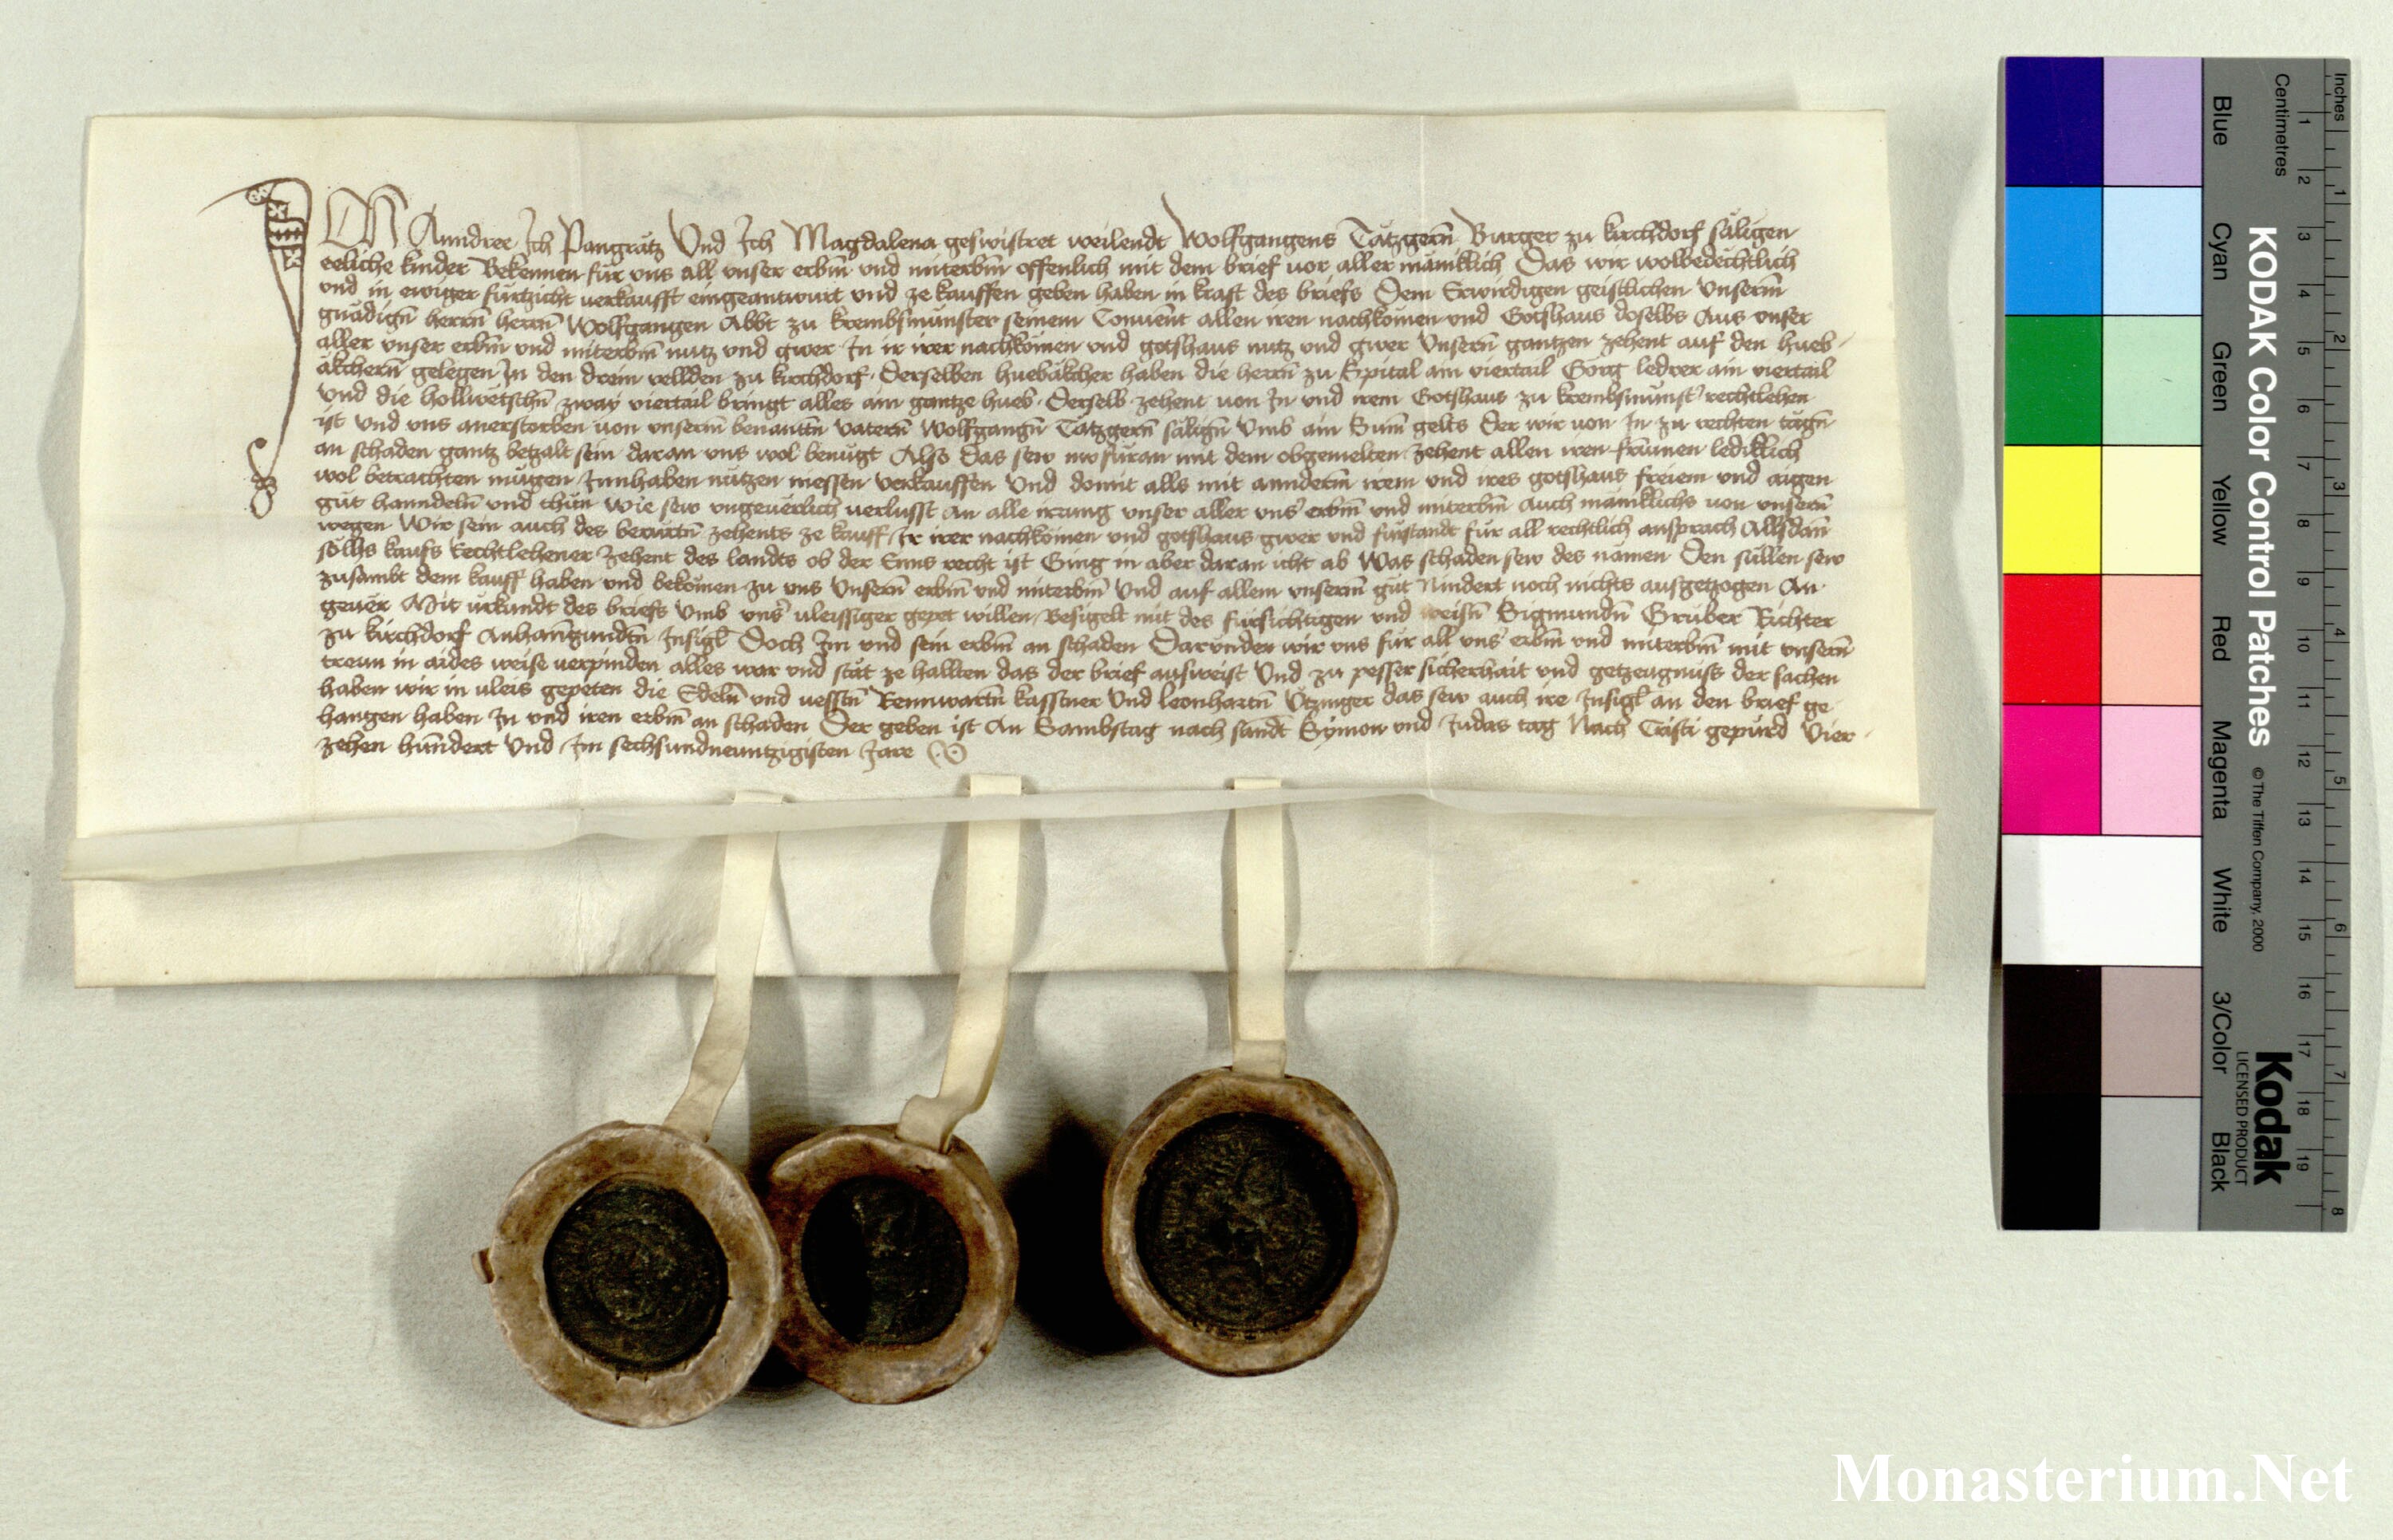 ICh Anndree Ich Pangrätz Vnd Ich Magdalena geswistret weilendt Wolfgangens Tätzgern̄ Burger zu kirchdorf säligen
eeliche kinder Bekennen für vns all vnser erbn̄ vnd miterbn̄ offenlich mit dem brief vor aller mäniklich Das wir wolbedechtlich
vnd in ewiger fürtzicht verkaufft eingeantwurt vnd ze kauffen geben haben in kraft des briefs Dem Erwirdigen geistlichen Vnserm̄
gnädign̄ herrn̄ herrn̄ Wolfgangen Abbt zu krembsmünster seinem Conuent allen iren nachkomen vnd Gotshaus doselbs Aus vnser
aller vnser erbn̄ vnd miterbn̄ nutz vnd gwer In ir irer nachkomen vnd gotshaus nutz vnd gwer Vnsern̄ gantzen zehent auf den hueb
äkchern̄ gelegen In den drein vellden zu kirchdorf Derselben huebäkcher haben die herrn̄ zu Spital ain viertail Görg ledrer ain viertail
Vnd die hollwetschn̄ zway viertail bringt alles ain gantze hueb Derselb zehent von In vnd irem Gotshaus zu krembsmünst̄ rechtlehen
ist Vnd vns anerstorben von vnserm̄ benantn̄ Vatern̄ Wolfgangn̄ Tätzgern̄ sälign̄ Vmb ain Sum̄ gelts Der wir von In zu rechten tägn̄
an schaden gantz betzalt sein daran vns wol benügt Also Das sew nwfüran mit dem obgemelten zehent allen iren frumen lediklich
wol betrachten mügen Innhaben nützen niessen verkauffen Vnd domit alls mit anndern̄ irem vnd ires gotshaus freiem vnd aigen
güt hanndeln̄ vnd thün wie sew vngeuerlich verlusst an alle irrung vnser aller vns̄ erbn̄ vnd miterbn̄ Auch mäniklichs von vnsern̄
wegen Wir sein auch des berürtn̄ zehents ze kauff Ir irer nachkomen vnd gotshaus gwer vnd fürstandt für all rechtlich ansprach Allsdan̄
sölhs kaufs Rechtlehener zehent des landts ob der Enns recht ist Ging in aber daran icht ab Was schaden sew des namen Den süllen sew
zusambt dem kauff haben vnd bekomen zu vns Vnsern̄ erbn̄ vnd miterbn̄ Vnd auf allem vnserm̄ güt Nindert noch nichts ausgetzogen An
geuer Mit vrkundt des briefs Vmb vns̄ vleissiger gepet willen Besigelt mit des fürsichtigen vnd weisn̄ Sigmundn̄ Grüber Richter
zu kirchdorf Anhangundtn̄ Insigl Doch Im vnd sein erbn̄ an schaden Darunder wir vns für all vns̄ erbn̄ vnd miterbn̄ mit vnsern̄
treun in aides weise verpinden alles war vnd stät ze hallten das der brief ausweist Vnd zu pesser sicherhait vnd getzeugnuss der sachen
haben wir in vleis gepeten die Edeln̄ vnd vesstn̄ Rennwartn̄ kasstner Vnd leonhartn̄ Vtzinger das sew auch ire Insigl an den brief ge
hangen haben In vnd iren erbn̄ an schaden Der geben ist An Sambstag nach sandt Symon vnd Judas tag Nach Cristi gepurd Vier
zehen hundert Vnd Im sechsundneuntzigisten Jare
KODAK Color Control Patches © The Tiffen Company, 2000 Kodak
LICENSED PRODUCT
Blue Cyan Green Yellow Red Magenta White 3/Color Black
Inches 1 2 3 4 5 6 7 8
Centimetres 1 2 3 4 5 6 7 8 9 10 11 12 13 14 15 16 17 18 19
Monasterium.Net